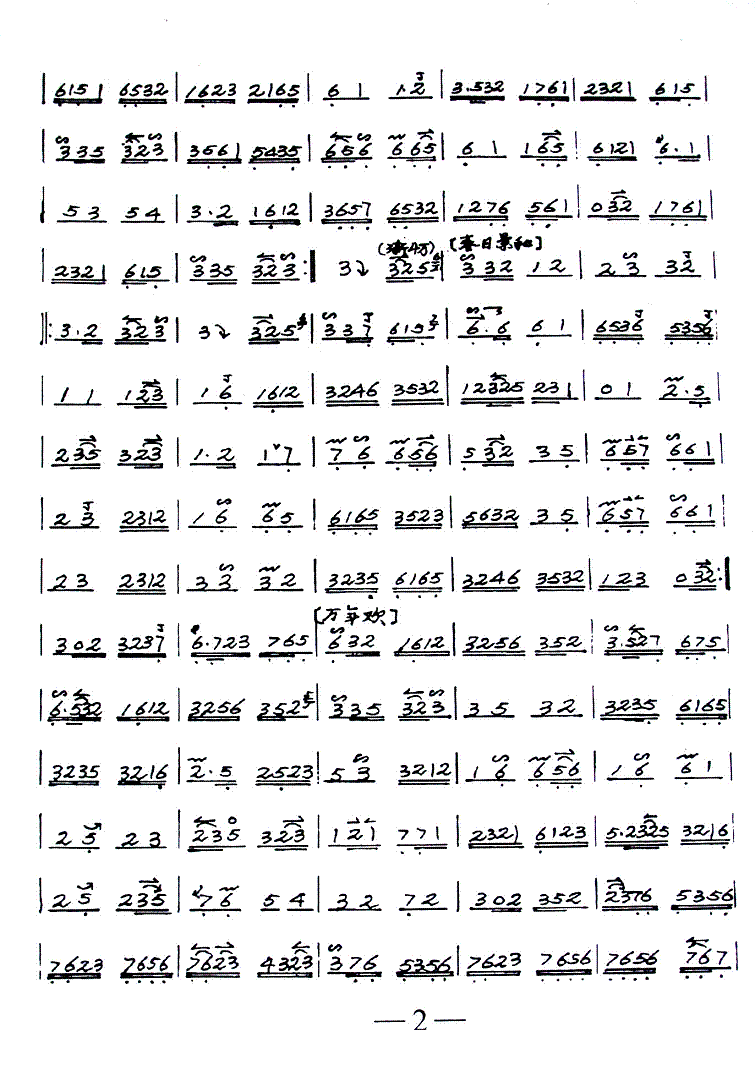 | 6151 6532 | 1623 2165 | 6 1 1 2 | 3.532 1761 | 2321 615 |
| 335 323 | 3561 5435 | 656 665 | 6 1 165 | 6121 6.1 |
| 53 54 | 3.2 1612 | 3657 6532 | 1276 561 | 032 1761 |
| 2321 615 | 335 323 :| 3 325 | [春日景和] 332 12 | 23 32 |
|: 3.2 323 | 3 325 | 337 615 | 6.6 61 | 6536 5356 |
| 11 123 | 16 1612 | 3246 3532 | 12325 231 | 01 2.5 |
| 235 323 | 1.2 17 | 76 656 | 532 35 | 657 661 |
| 23 2312 | 16 65 | 6165 3523 | 5632 35 | 657 661 |
| 23 2312 | 33 32 | 3235 6165 | 3246 3532 | 123 032 :|
| 302 3237 | 6.723 765 | [万年欢] 632 1612 | 3256 352 | 3.527 675 |
| 6.532 1612 | 3256 352 | 335 323 | 35 32 | 3235 6165 |
| 3235 3216 | 2.5 2523 | 53 3212 | 16 656 | 16 61 |
| 25 23 | 235 323 | 121 771 | 2321 6123 | 5.2325 3216 |
| 25 235 | 76 54 | 32 72 | 302 352 | 2376 5356 |
| 7623 7656 | 7623 4323 | 376 5356 | 7623 7656 | 7656 767 |
—2—